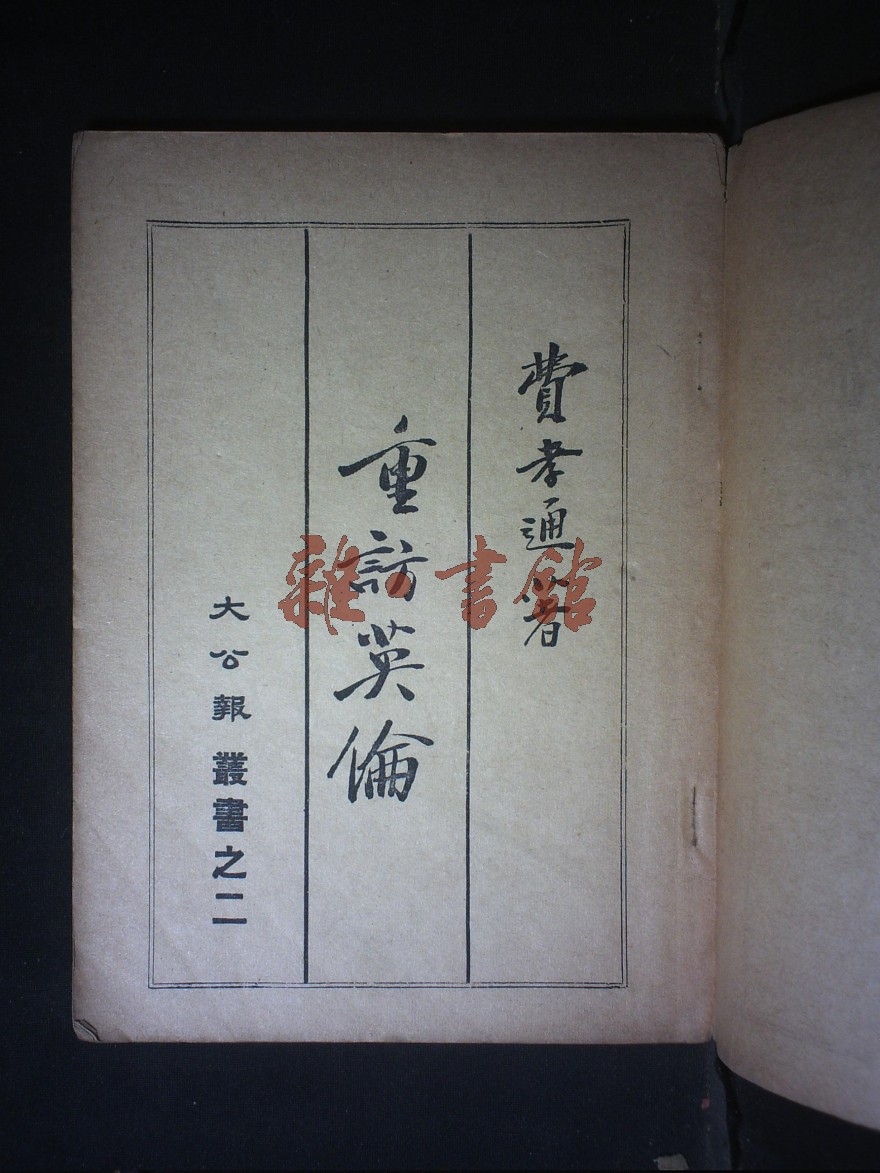 費孝通著
重訪英倫
大公報叢書之二
雜·書館